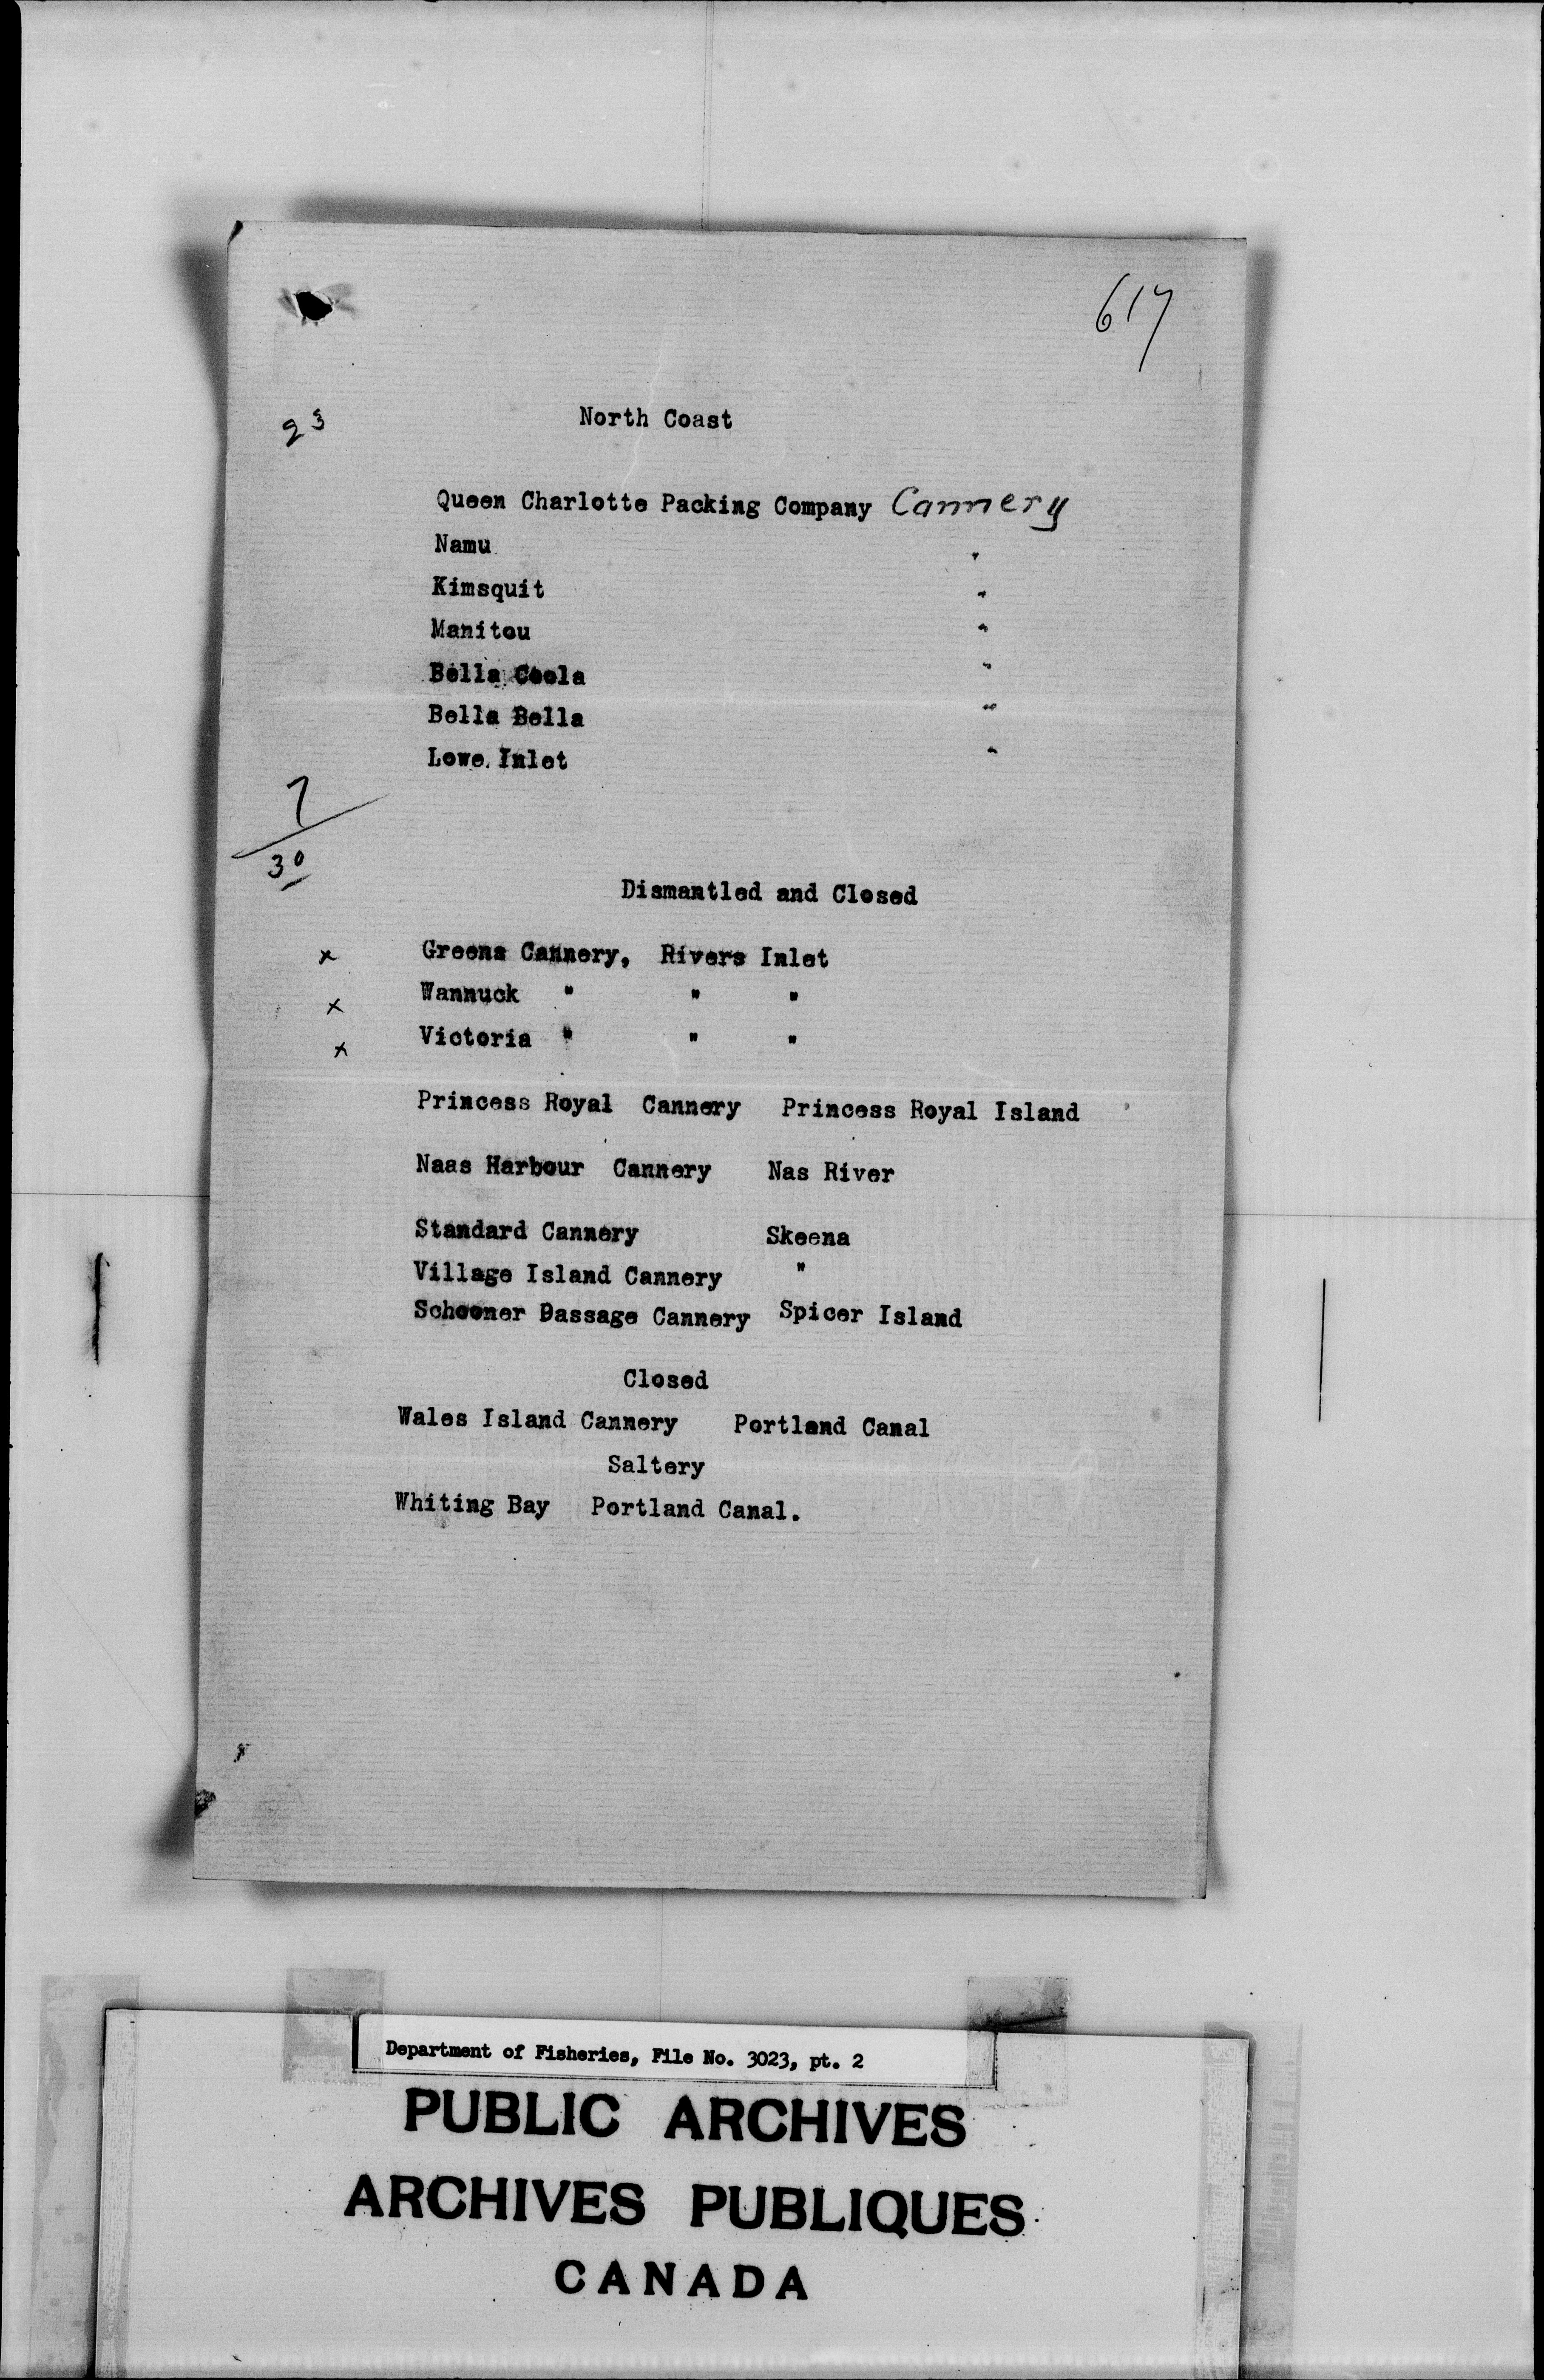 617
23
North Coast
Queen Charlotte Packing Company Cannery
Namu "
Kimsquit "
Manitou "
Bella Coola "
Bella Bella "
Lowe Inlet "
7
30
Dismantled and Closed
x Greens Cannery, Rivers Inlet
x Wannuck " " "
x Victoria " " "
Princess Royal Cannery Princess Royal Island
Naas Harbour Cannery Nas River
Standard Cannery Skeena
Village Island Cannery "
Schooner Passage Cannery Spicer Island
Closed
Wales Island Cannery Portland Canal
Saltery
Whiting Bay Portland Canal.
Department of Fisheries, File No. 3023, pt. 2
PUBLIC ARCHIVES
ARCHIVES PUBLIQUES
CANADA